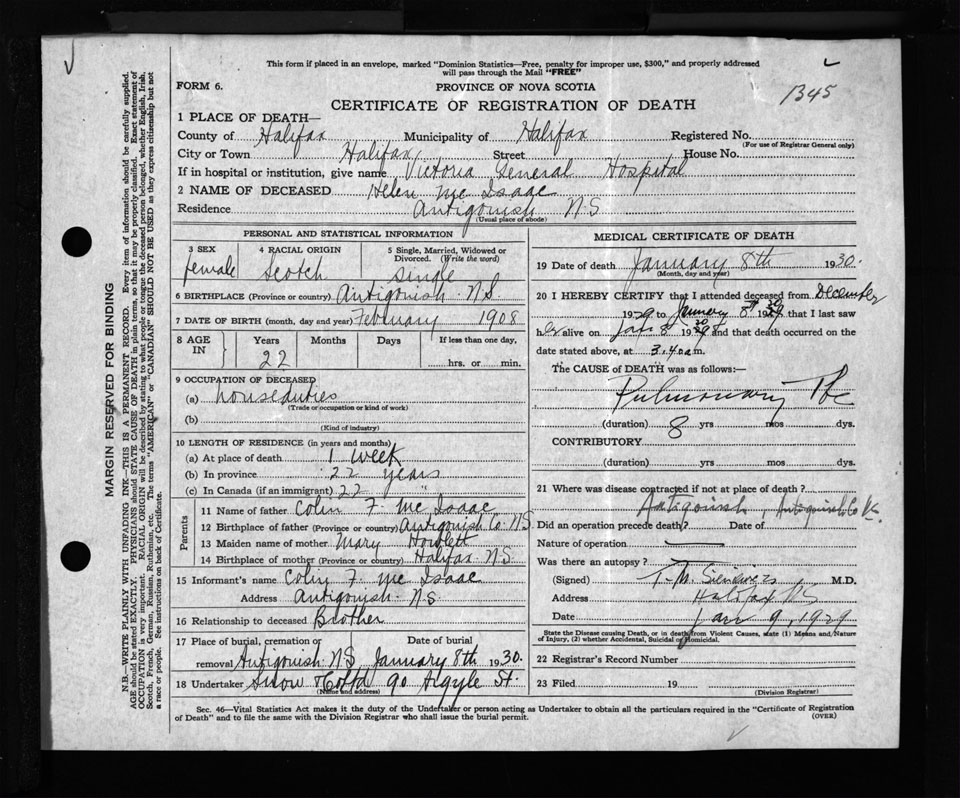 This form if placed in an envelope, marked "Dominion Statistics—Free, penalty for improper use, $300," and properly addressed
will pass through the Mail "FREE"
FORM 6.
PROVINCE OF NOVA SCOTIA
1345
CERTIFICATE OF REGISTRATION OF DEATH
1 PLACE OF DEATH—
County of Halifax Municipality of Halifax Registered No.
(For use of Registrar General only)
City or Town Halifax Street House No.
If in hospital or institution, give name Victoria General Hospital
2 NAME OF DECEASED Helen Mc Isaac
Residence Antigonish N S
(Usual place of abode)
PERSONAL AND STATISTICAL INFORMATION
3 SEX 4 RACIAL ORIGIN 5 Single, Married, Widowed or
Divorced. (Write the word)
female Scotch single
6 BIRTHPLACE (Province or country) Antigonish N.S.
7 DATE OF BIRTH (month, day and year) February 1908
8 AGE IN Years Months Days If less than one day,
22 hrs. or min.
9 OCCUPATION OF DECEASED
(a) houseduties
(Trade or occupation or kind of work)
(b)
(Kind of industry)
10 LENGTH OF RESIDENCE (in years and months)
(a) At place of death 1 week
(b) In province 22 years
(c) In Canada (if an immigrant) 22 "
Parents
11 Name of father Colin F. Mc Isaac
12 Birthplace of father (Province or country) Antigonish Co. N.S.
13 Maiden name of mother Mary Howlett
14 Birthplace of mother (Province or country) Halifax N.S.
15 Informant's name Colin F. Mc Isaac
Address Antigonish N.S
16 Relationship to deceased Brother
17 Place of burial, cremation or Date of burial
removal Antigonish N.S January 8th 1930.
18 Undertaker Snow & Co Ltd 90 Argyle St.
(Name and address)
MEDICAL CERTIFICATE OF DEATH
19 Date of death January 8th 1930.
(Month, day and year)
20 I HEREBY CERTIFY that I attended deceased from December
1929 to January 8th 1930 that I last saw
her alive on Jan 8 1930 and that death occurred on the
date stated above, at 3.40 a m.
The CAUSE OF DEATH was as follows:—
Pulmonary Tbc
(duration) 8 yrs mos dys.
CONTRIBUTORY
(duration) yrs mos dys.
21 Where was disease contracted if not at place of death?
Antigonish, Antigonish Co
Did an operation precede death? Date of
Nature of operation
Was there an autopsy?
(Signed) T. M. M.D.
Address Halifax N S
Date Jan 9, 1929
State the Disease causing Death, or in death from Violent Causes, state (1) Means and Nature
of Injury, (2) whether Accidental, Suicidal or Homicidal.
22 Registrar's Record Number
23 Filed 19
(Division Registrar)
Sec. 46—Vital Statistics Act makes it the duty of the Undertaker or person acting as Undertaker to obtain all the particulars required in the "Certificate of Registration
of Death" and to file the same with the Division Registrar who shall issue the burial permit.
(OVER)
MARGIN RESERVED FOR BINDING
N.B.—WRITE PLAINLY WITH UNFADING INK—THIS IS A PERMANENT RECORD. Every item of information should be carefully supplied.
AGE should be stated EXACTLY. PHYSICIANS should STATE CAUSE OF DEATH in plain terms, so that it may be properly classified. Exact statement of
OCCUPATION is very important. RACIAL ORIGIN will be described by stating to what people or tongue the deceased person belonged, whether English, Irish,
Scotch, French, German, Russian, Ruthenian, etc. The terms "AMERICAN" or "CANADIAN" SHOULD NOT BE USED as they express citizenship but not
a race or people. See instructions on back of Certificate.